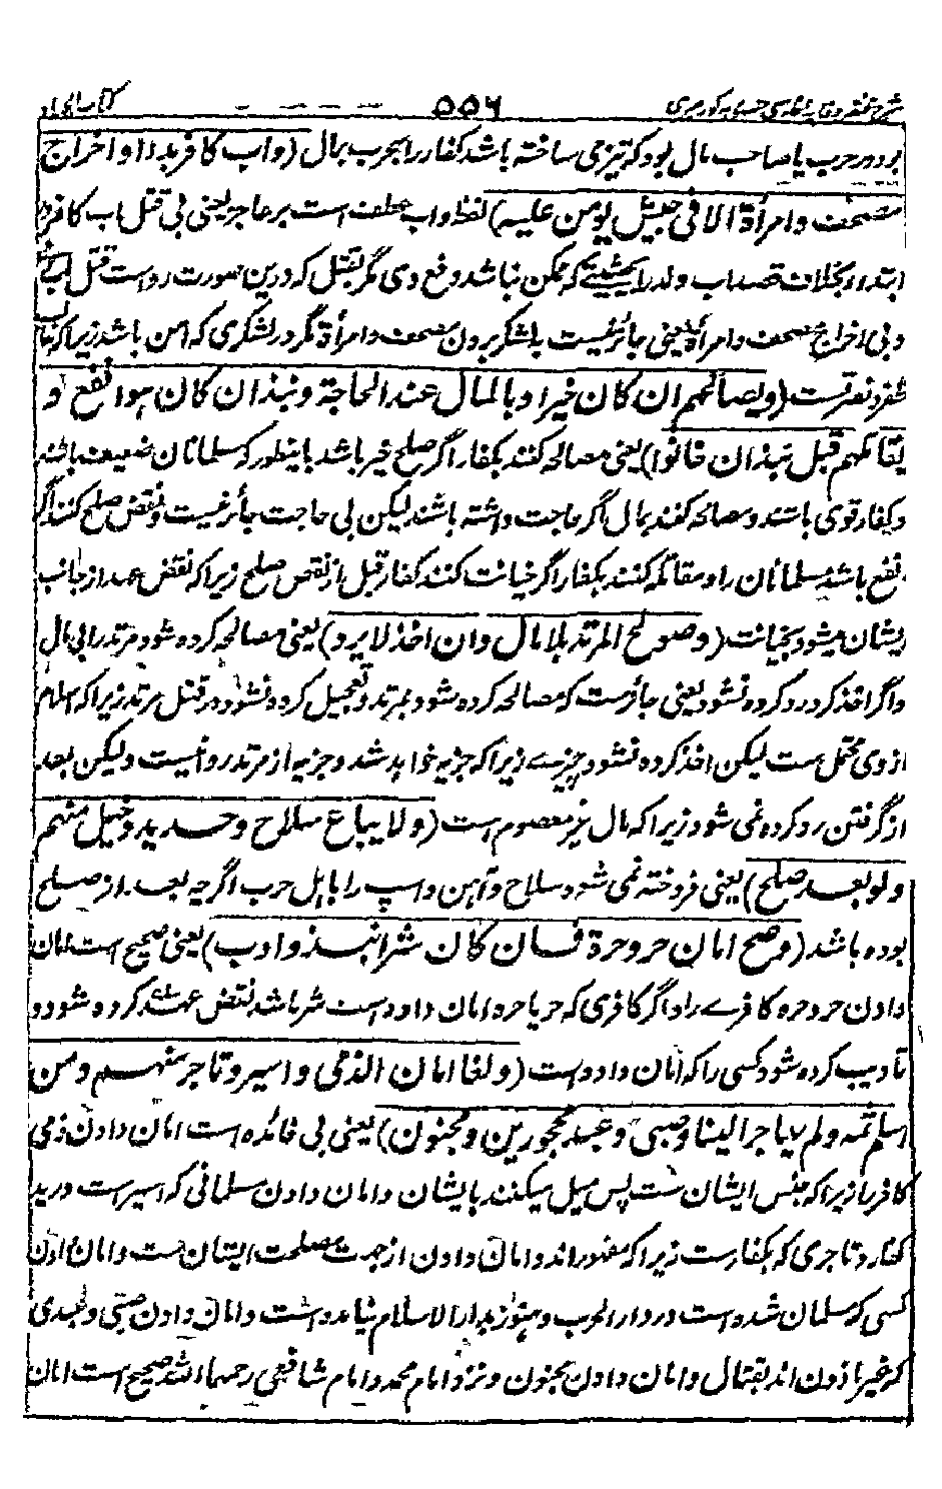 ۵۵۶ کتاب الجهاد
بود در حرب یا صاحب مال بود که تیزی ساخته باشد کفار را بحرب بمال (و اب کافر بدءا و اخراج
مصحف و امرأة الا فی جیش یومن علیه) لفظ و اب عطف است بر عاجز یعنی بی قتل اب کافر
ابتداء بخلاف قصد اب ولد را بحیثیتی که ممکن نباشد دفع وی مگر بقتل که درین صورت رواست قتل اب
و بی اخراج مصحف و امرأة یعنی جائز نیست با لشکر بردن مصحف و امرأة مگر در لشکری که امن باشد زیرا که
ظفر نعقرست (ویصالحهم ان کان خیرا و بالمال عند الحاجة و نبذ ان کان هو انفع و
یقاتلهم قبل نبذ ان خانوا) یعنی مصالحه کنند بکفار اگر صلح خیر باشد باینطور که مسلمانان ضعیف باشند
و کفار قوی باشند و مصالحه کنند بمال اگر حاجت داشته باشند لیکن بی حاجت جائز نیست و نقض صلح کنند اگر
نفع باشد مسلمانان را و مقاتله کنند بکفار اگر خیانت کنند کفار قبل از نقض صلح زیرا که نقض عهد از جانب
ایشان میشود بخیانت (و صولح المرتد بلا مال وان اخذ لا یرد) یعنی مصالحه کرده شود مرتد را بی مال
و اگر اخذ کرد رد کرده نشود یعنی جائزست که مصالحه کرده شود بمرتد و تعجیل کرده نشود در قتل مرتد زیرا که اسلام
از وی محتمل ست لیکن اخذ کرده نشود چیزے زیرا که جزیه خواهد شد و جزیه از مرتد روا نیست ولیکن بعد
از گرفتن رد کرده نمی شود زیرا که مال غیر معصوم است (ولا یباع سلاح وحدید وخیل منهم
ولو بعد صلح) یعنی فروخته نمی شود سلاح و آهن و اسپ را با اهل حرب اگرچه بعد از صلح
بوده باشد (وصح امان حر وحرة فان کان شرا نبذ و ادب) یعنی صحیح است امان
دادن حر و حره کافرے را و اگر کافری که حر یا حره امان داده است شر باشد نقض عهد کرده شود و
تادیب کرده شود کسی را که امان داده است (ولغا امان الذمی و اسیر و تاجر منهم ومن
اسلم ثمه ولم یهاجر الینا وصبی وعبد محجورین ومجنون) یعنی بی فائده است امان دادن ذمی
کافر را زیرا که جنس ایشان ست پس میل میکنند بایشان و امان دادن مسلمانی که اسیر ست در ید
کفار و تاجری که بکفار ست زیرا که مقهور اند و امان دادن از جهت مصلحت ایشان ست و امان دادن
کسی که مسلمان شده است در دار الحرب و هنوز بدار الاسلام نیامده است و امان دادن صبی و عبدی
که غیر ماذون اند بقتال و امان دادن مجنون و نزد امام محمد و امام شافعی رحمهما الله صحیح است امان